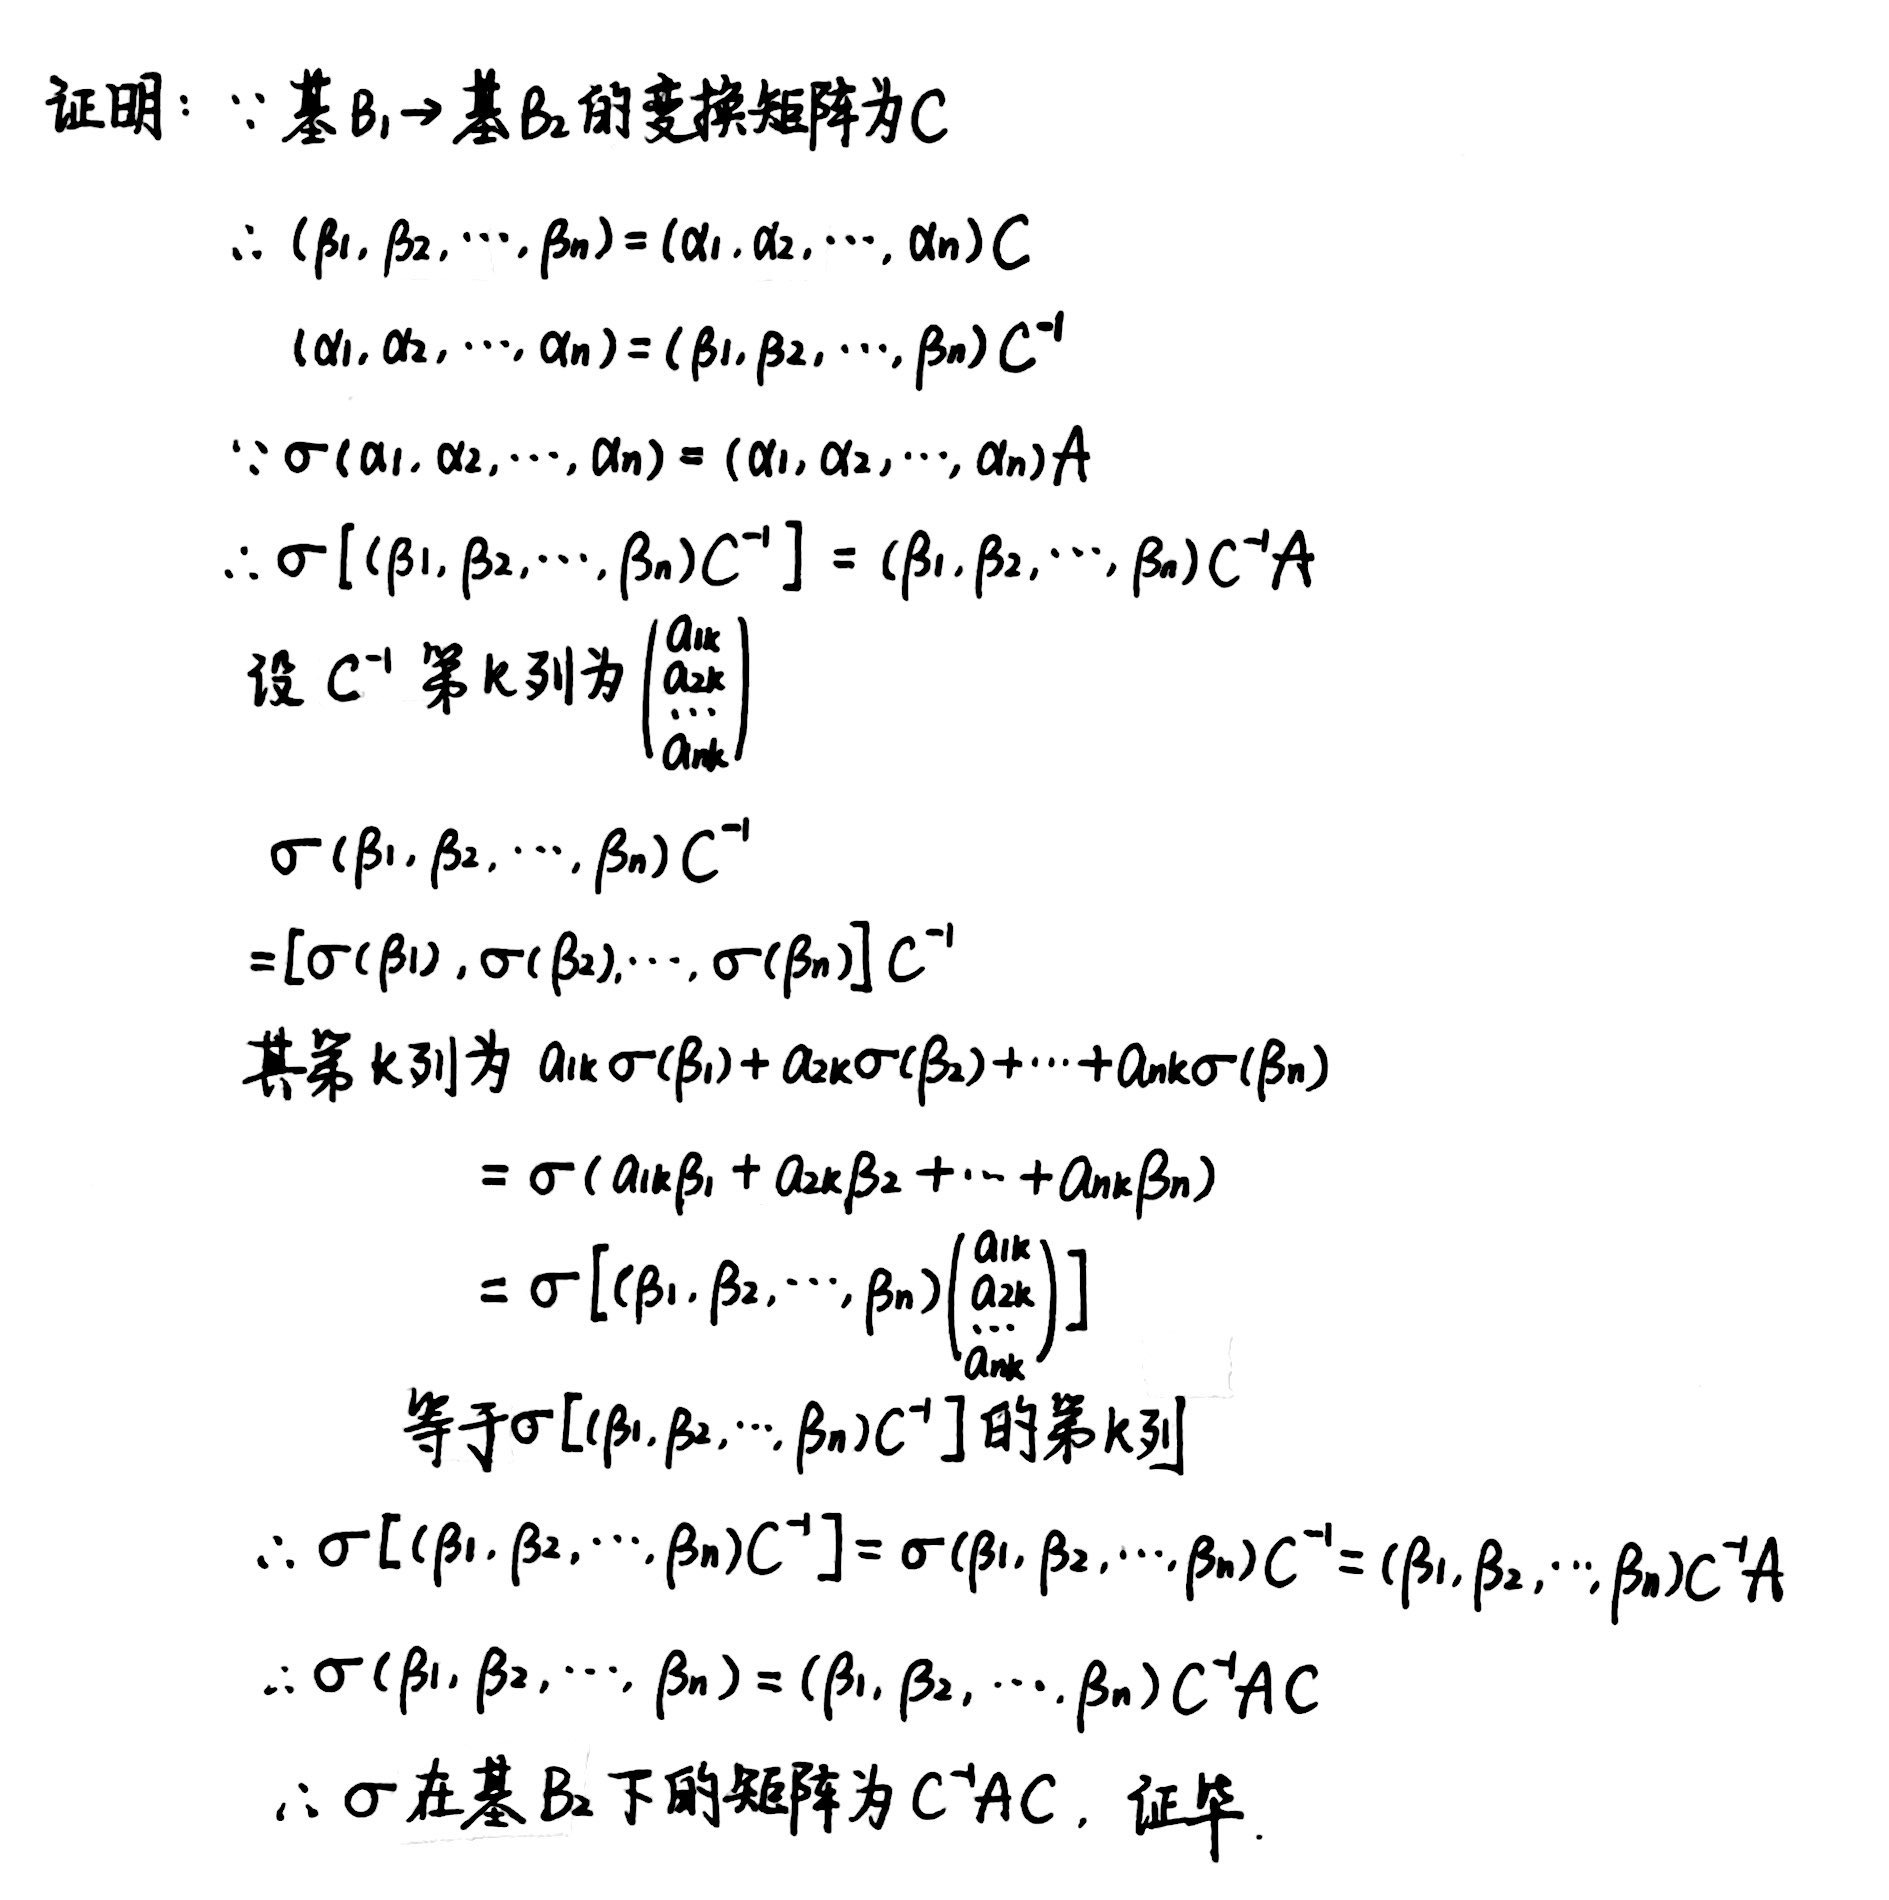 证明：∵ 基 B₁→ 基 B₂ 的变换矩阵为 C
∴ (β₁, β₂, ⋯, βn) = (α₁, α₂, ⋯, αn) C
(α₁, α₂, ⋯, αn) = (β₁, β₂, ⋯, βn) C⁻¹
∵ σ(α₁, α₂, ⋯, αn) = (α₁, α₂, ⋯, αn) A
∴ σ[(β₁, β₂, ⋯, βn) C⁻¹] = (β₁, β₂, ⋯, βn) C⁻¹A
设 C⁻¹ 第 k 列为 (a1k a2k ⋯ ank)
σ(β₁, β₂, ⋯, βn) C⁻¹
= [σ(β₁), σ(β₂), ⋯, σ(βn)] C⁻¹
其第 k 列为 a1kσ(β₁) + a2kσ(β₂) + ⋯ + ankσ(βn)
= σ(a1kβ₁ + a2kβ₂ + ⋯ + ankβn)
= σ[(β₁, β₂, ⋯, βn)(a1k a2k ⋯ ank)]
等于 σ[(β₁, β₂, ⋯, βn) C⁻¹] 的第 k 列
∴ σ[(β₁, β₂, ⋯, βn) C⁻¹] = σ(β₁, β₂, ⋯, βn) C⁻¹ = (β₁, β₂, ⋯, βn) C⁻¹A
∴ σ(β₁, β₂, ⋯, βn) = (β₁, β₂, ⋯, βn) C⁻¹AC
∴ σ 在基 B₂ 下的矩阵为 C⁻¹AC, 证毕.